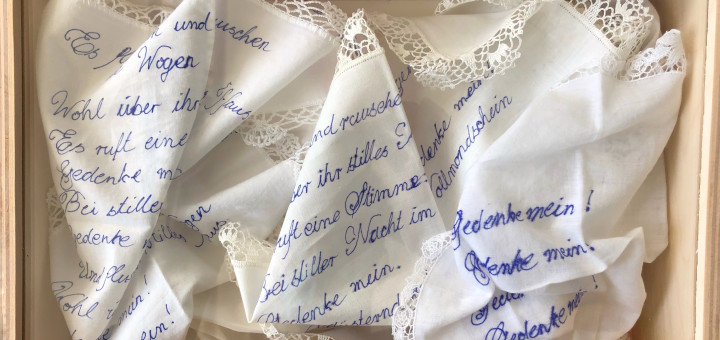 und
uschen
Es
Wogen
Wohl über ihr
Haus
Es ruft eine
Gedenke
Bei stiller
Gedenke
stiller
Und
Wohl
mein!
ein!
und rausche
ber ihr stilles
ruft eine Stimme:
Bei stiller Nacht im
Gedenke mein.
flüsternd
denke mein
ollmondschein
Gedenke mein!
Denke mein.
Geden
Gedenke mein!